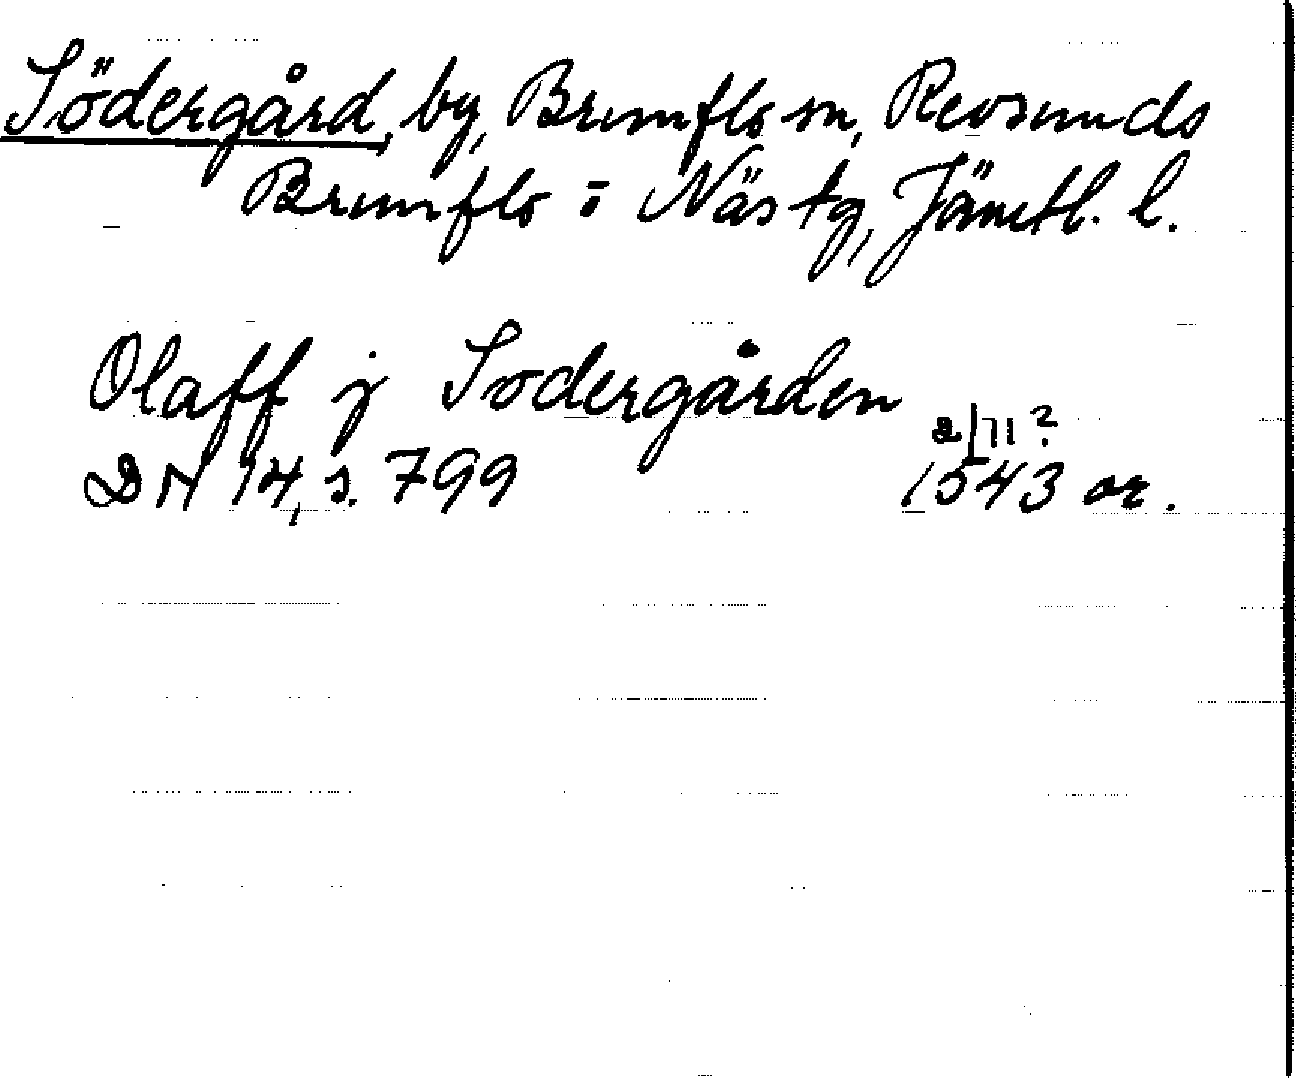 Södergård, by, Brunflo sn, Revsunds
Brunflo ö Näs tg, Jämtl. l.
Olaff j Sodergården
2/11?
DN 14, s. 799 1543 or.